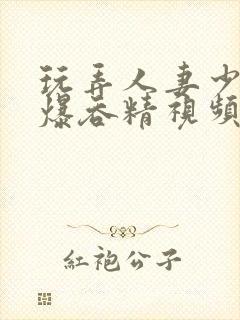 玩弄人妻少
爆吞精視頻
紅袍公子